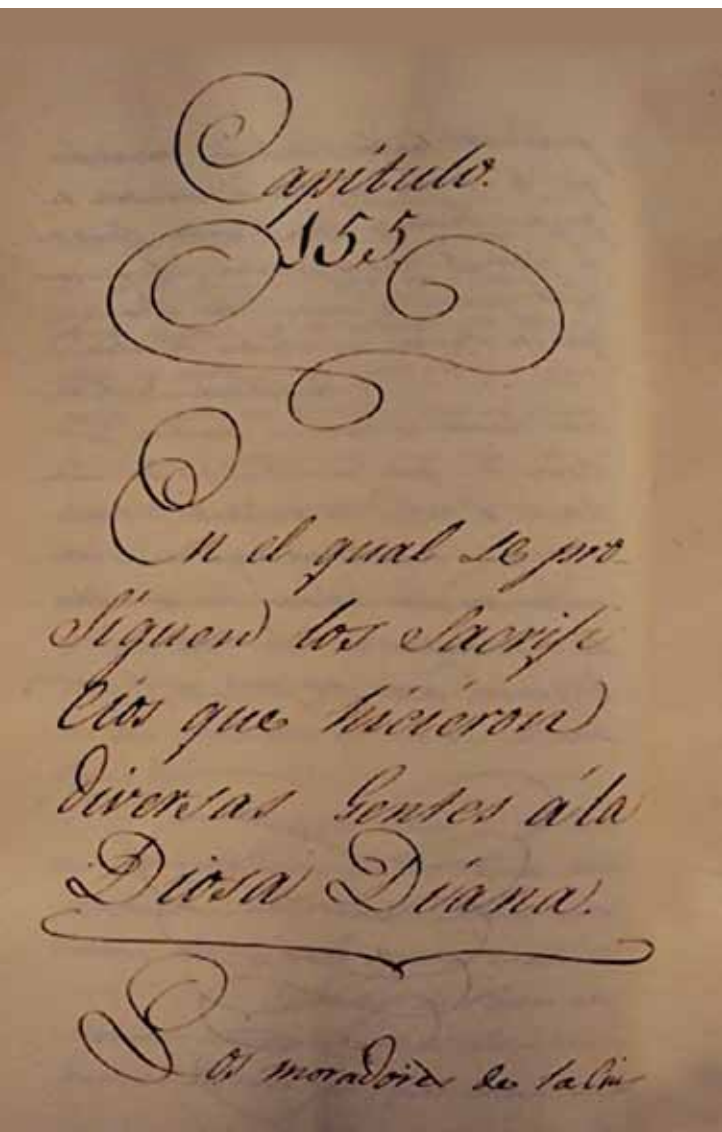 Capitulo.
155
En el qual se pro
siguen los Sacrifi
cios que hicieron
diversas Gentes á la
Diosa Diana.
Los moradores de la Ciu